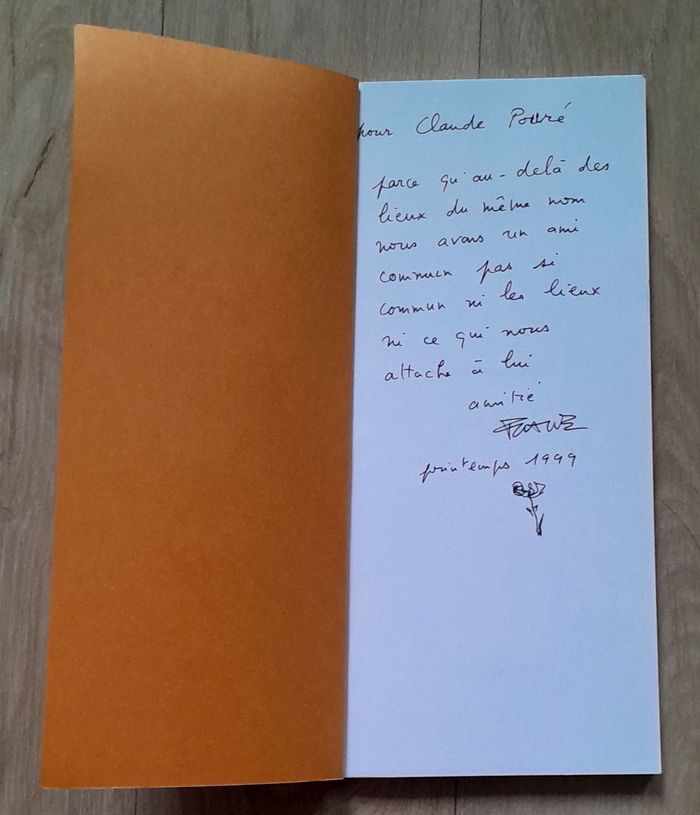 pour Claude Pourré
parce qu'au-delà des
lieux du même nom
nous avons un ami
commun pas si
commun ni les lieux
ni ce qui nous
attache à lui
amitié
printemps 1999